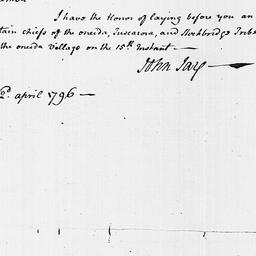 I have the Honor of laying before you an
tain chiefs of the oneida, Tuscarora, and Stockbridge Tribe
the oneida Village on the 15th Instant —
John Jay —
2d. april 1796 —